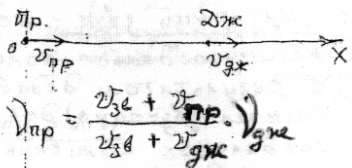 Пр. Дж
0 υпр υдж X
νпр = υзв + υпр / υзв + υдж · νдж